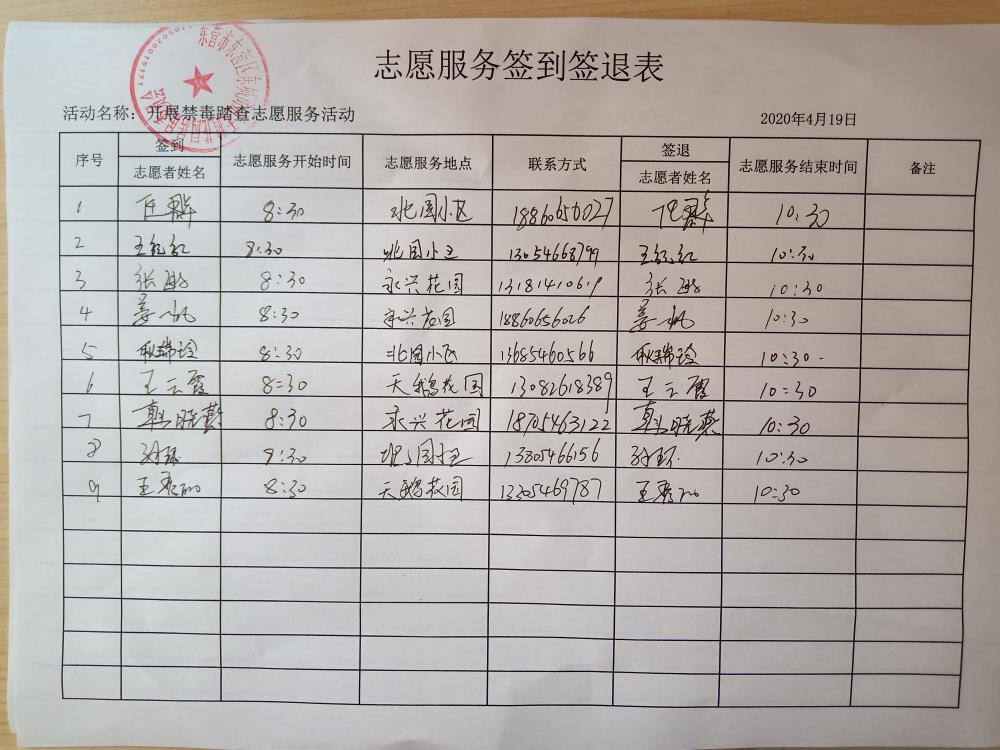 志愿服务签到签退表
活动名称：开展禁毒踏查志愿服务活动
2020年4月19日
序号 签到 志愿者姓名 志愿服务开始时间 志愿服务地点 联系方式 签退 志愿者姓名 志愿服务结束时间 备注
1 8:30 北园小区 18860656027 10:30
2 王红红 8:30 北园小区 13054668799 王红红 10:30
3 张 8:30 永兴花园 13181410619 张 10:30
4 姜一帆 8:30 永兴花园 18860656026 姜一帆 10:30
5 耿瑞玲 8:30 北园小区 13685460566 耿瑞玲 10:30
6 王云霞 8:30 天鹅花园 13082618389 王云霞 10:30
7 韩晓燕 8:30 永兴花园 18705463122 韩晓燕 10:30
8 孙环 8:30 北园小区 13805466156 孙环 10:30
9 王秀 8:30 天鹅花园 13305469787 王秀 10:30